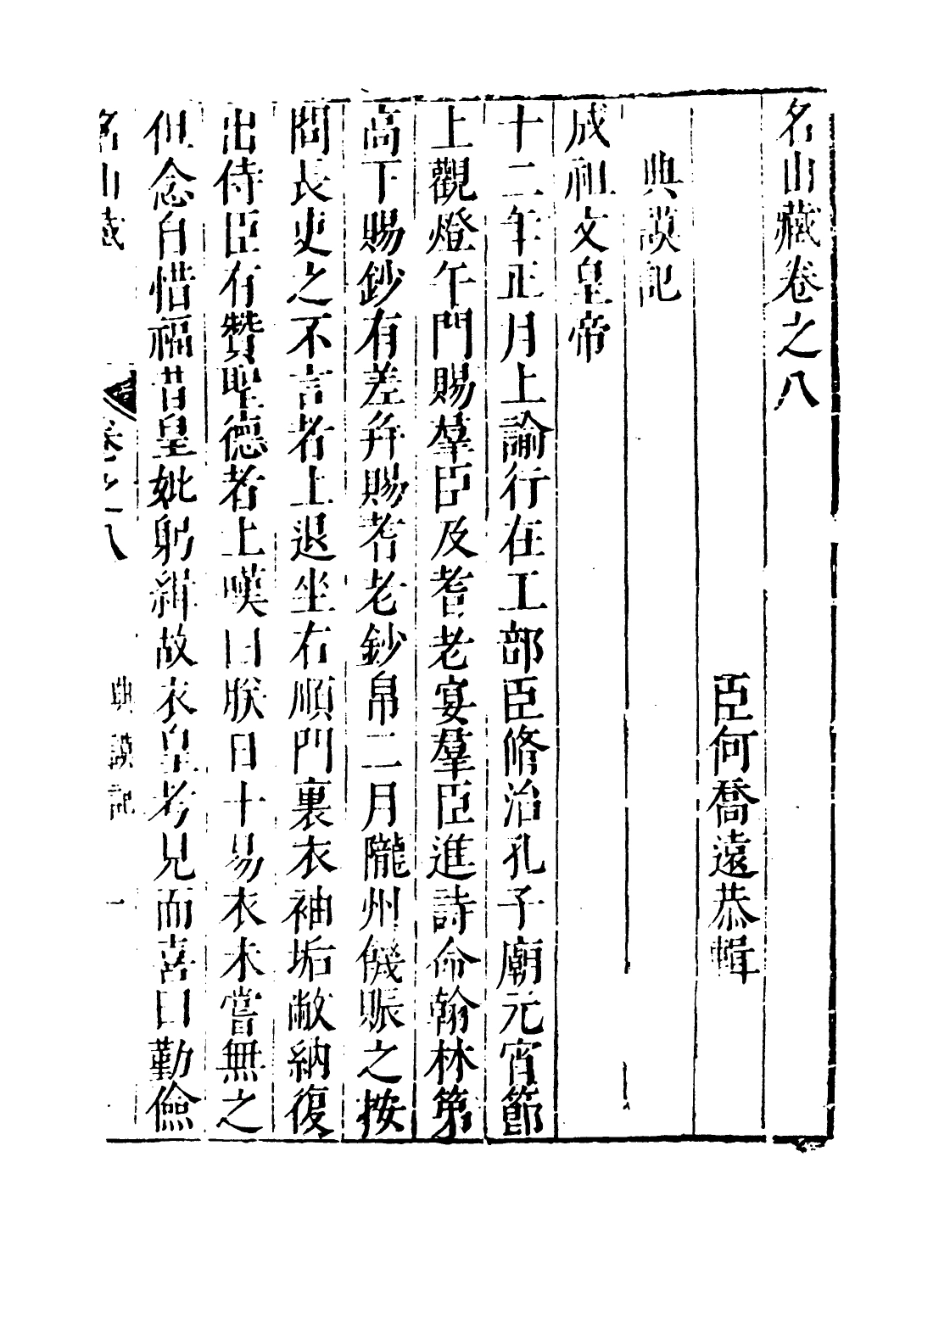 名山藏卷之八
臣何喬遠恭輯
典謨記
成祖文皇帝
十二年正月上諭行在工部臣脩治孔子廟元宵節
上觀燈午門賜羣臣及耆老宴羣臣進詩命翰林第
高下賜鈔有差并賜耆老鈔帛二月隴州饑賑之按
問長吏之不言者上退坐右順門裏衣袖垢敝納復
出侍臣有贊聖德者上嘆曰朕日十易衣未嘗無之
但念自惜福昔皇妣躬緝故衣皇考見而喜曰勤儉
名山藏 卷之八 典謨記 一